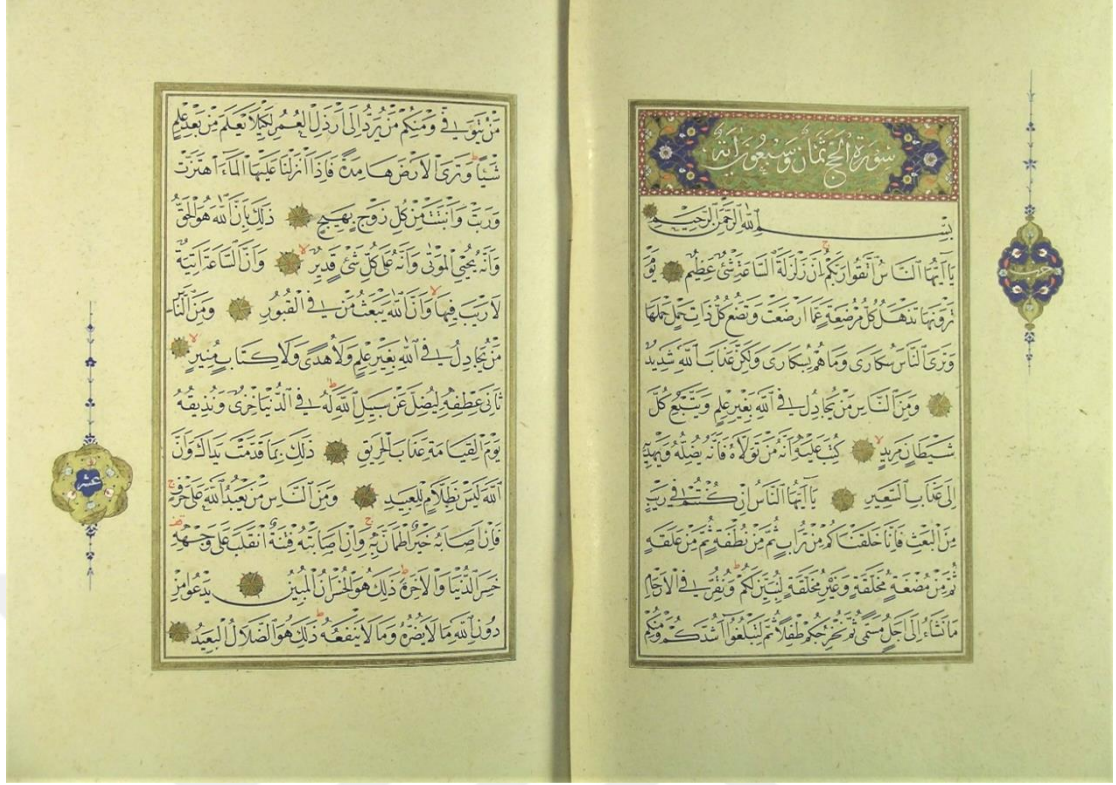 سورة الحج ثمان وسبعون اية
بسم الله الرحمن الرحيم
يَا اَيُّهَا النَّاسُ اتَّقُوا رَبَّكُمْ اِنَّ زَلْزَلَةَ السَّاعَةِ شَيْءٌ عَظِيمٌ يَوْمَ
تَرَوْنَهَا تَذْهَلُ كُلُّ مُرْضِعَةٍ عَمَّا اَرْضَعَتْ وَتَضَعُ كُلُّ ذَاتِ حَمْلٍ حَمْلَهَا
وَتَرَى النَّاسَ سُكَارَى وَمَا هُمْ بِسُكَارَى وَلٰكِنَّ عَذَابَ اللّٰهِ شَدِيدٌ
وَمِنَ النَّاسِ مَنْ يُجَادِلُ فِي اللّٰهِ بِغَيْرِ عِلْمٍ وَيَتَّبِعُ كُلَّ
شَيْطَانٍ مَرِيدٍ كُتِبَ عَلَيْهِ اَنَّهُ مَنْ تَوَلَّاهُ فَاَنَّهُ يُضِلُّهُ وَيَهْدِيهِ
اِلَى عَذَابِ السَّعِيرِ يَا اَيُّهَا النَّاسُ اِنْ كُنْتُمْ فِي رَيْبٍ
مِنَ الْبَعْثِ فَاِنَّا خَلَقْنَاكُمْ مِنْ تُرَابٍ ثُمَّ مِنْ نُطْفَةٍ ثُمَّ مِنْ عَلَقَةٍ
ثُمَّ مِنْ مُضْغَةٍ مُخَلَّقَةٍ وَغَيْرِ مُخَلَّقَةٍ لِنُبَيِّنَ لَكُمْ وَنُقِرُّ فِي الْاَرْحَامِ
مَا نَشَاءُ اِلَى اَجَلٍ مُسَمًّى ثُمَّ نُخْرِجُكُمْ طِفْلًا ثُمَّ لِتَبْلُغُوا اَشُدَّكُمْ وَمِنْكُمْ
حزب
مَنْ يُتَوَفَّى وَمِنْكُمْ مَنْ يُرَدُّ اِلَى اَرْذَلِ الْعُمُرِ لِكَيْلَا يَعْلَمَ مِنْ بَعْدِ عِلْمٍ
شَيْئًا وَتَرَى الْاَرْضَ هَامِدَةً فَاِذَا اَنْزَلْنَا عَلَيْهَا الْمَاءَ اهْتَزَّتْ
وَرَبَتْ وَاَنْبَتَتْ مِنْ كُلِّ زَوْجٍ بَهِيجٍ ذٰلِكَ بِاَنَّ اللّٰهَ هُوَ الْحَقُّ
وَاَنَّهُ يُحْيِي الْمَوْتٰى وَاَنَّهُ عَلَى كُلِّ شَيْءٍ قَدِيرٌ وَاَنَّ السَّاعَةَ اٰتِيَةٌ
لَا رَيْبَ فِيهَا وَاَنَّ اللّٰهَ يَبْعَثُ مَنْ فِي الْقُبُورِ وَمِنَ النَّاسِ
مَنْ يُجَادِلُ فِي اللّٰهِ بِغَيْرِ عِلْمٍ وَلَا هُدًى وَلَا كِتَابٍ مُنِيرٍ
ثَانِيَ عِطْفِهِ لِيُضِلَّ عَنْ سَبِيلِ اللّٰهِ لَهُ فِي الدُّنْيَا خِزْيٌ وَنُذِيقُهُ
يَوْمَ الْقِيَامَةِ عَذَابَ الْحَرِيقِ ذٰلِكَ بِمَا قَدَّمَتْ يَدَاكَ وَاَنَّ
اللّٰهَ لَيْسَ بِظَلَّامٍ لِلْعَبِيدِ وَمِنَ النَّاسِ مَنْ يَعْبُدُ اللّٰهَ عَلَى حَرْفٍ
فَاِنْ اَصَابَهُ خَيْرٌ اطْمَاَنَّ بِهِ وَاِنْ اَصَابَتْهُ فِتْنَةٌ انْقَلَبَ عَلَى وَجْهِهِ
خَسِرَ الدُّنْيَا وَالْاٰخِرَةَ ذٰلِكَ هُوَ الْخُسْرَانُ الْمُبِينُ يَدْعُوا مِنْ
دُونِ اللّٰهِ مَا لَا يَضُرُّهُ وَمَا لَا يَنْفَعُهُ ذٰلِكَ هُوَ الضَّلَالُ الْبَعِيدُ
عشر